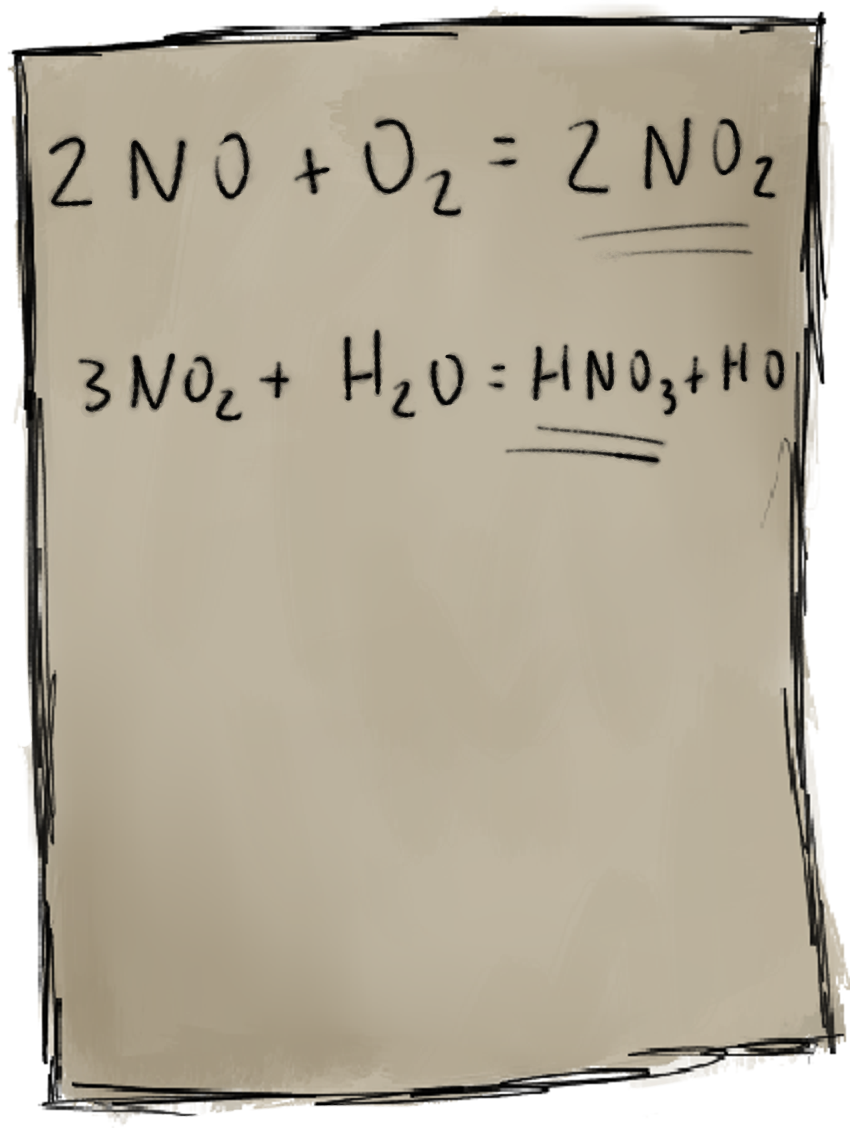 2 NO + O₂ = 2 NO₂
3 NO₂ + H₂O = HNO₃ + HO